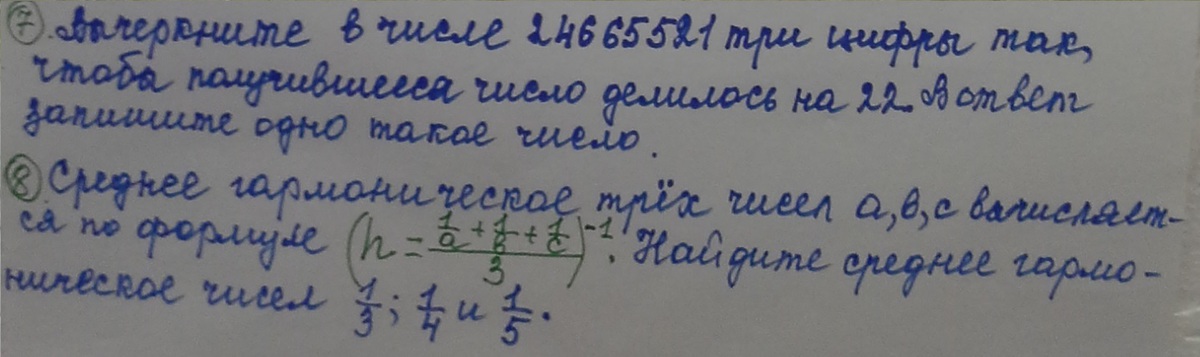 7. Вычеркните в числе 24665521 три цифры так,
чтобы получившееся число делилось на 22. В ответ
запишите одно такое число.
8. Среднее гармоническое трёх чисел a, b, c вычисляет-
ся по формуле (h = (1/a + 1/b + 1/c)/3)^-1. Найдите среднее гармо-
ническое чисел 1/3; 1/4 и 1/5.